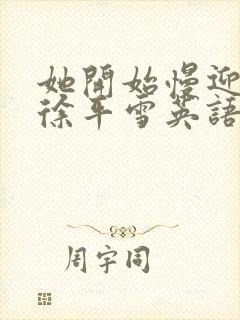 她開始慢迎
徐平雪英語
周宇同